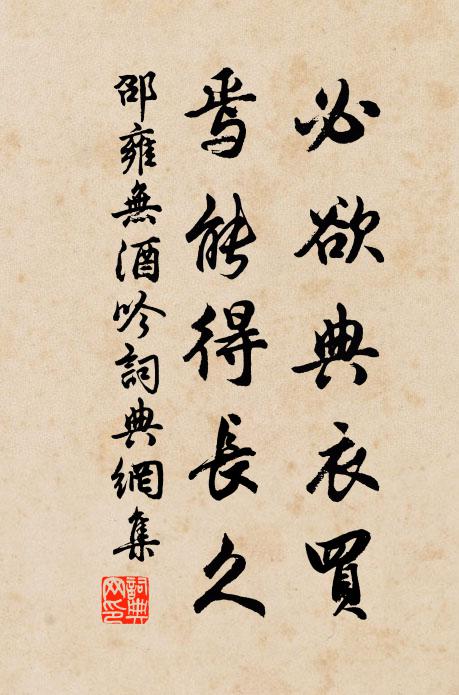 必欲典衣買
焉能得長久
邵雍無酒吟詞典網集
詞典網印